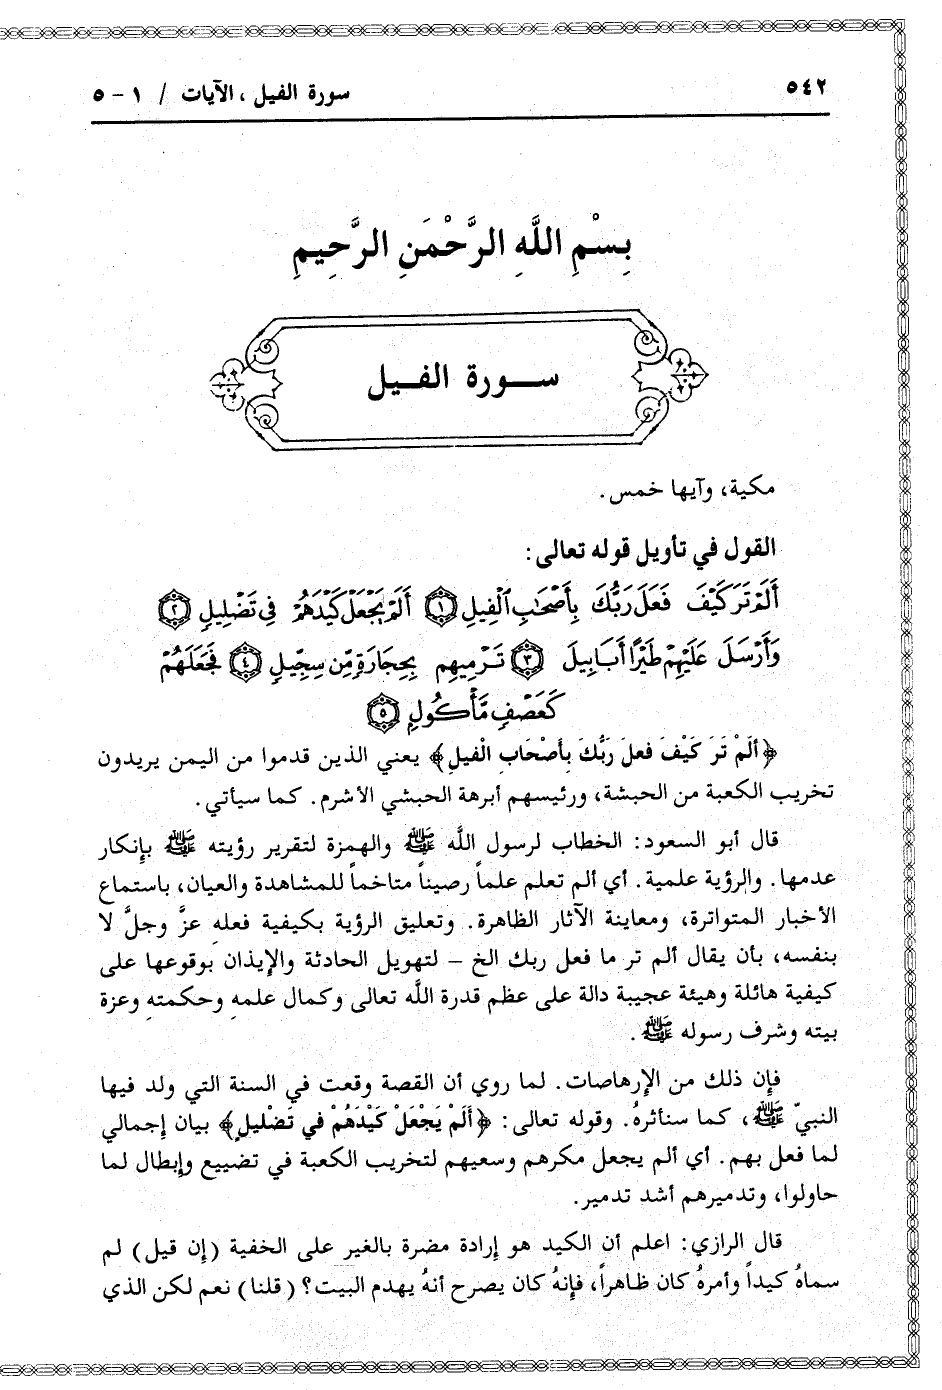 ٥٤٢ سورة الفيل ، الآيات / ١ - ٥
بِسْمِ اللَّهِ الرَّحْمَنِ الرَّحِيمِ
سورة الفيل
مكية، وآيها خمس.
القول في تأويل قوله تعالى:
أَلَمْ تَرَ كَيْفَ فَعَلَ رَبُّكَ بِأَصْحَٰبِ ٱلْفِيلِ ١ أَلَمْ يَجْعَلْ كَيْدَهُمْ فِى تَضْلِيلٍ ٢
وَأَرْسَلَ عَلَيْهِمْ طَيْرًا أَبَابِيلَ ٣ تَرْمِيهِم بِحِجَارَةٍ مِّن سِجِّيلٍ ٤ فَجَعَلَهُمْ
كَعَصْفٍ مَّأْكُولٍ ٥
﴿أَلَمْ تَرَ كَيْفَ فَعلَ رَبُّكَ بِأَصْحَابِ الْفيلِ﴾ يعني الذين قدموا من اليمن يريدون
تخريب الكعبة من الحبشة، ورئيسهم أبرهة الحبشي الأشرم. كما سيأتي.
قال أبو السعود: الخطاب لرسول اللَّه ﷺ والهمزة لتقرير رؤيته ﷺ بإنكار
عدمها. والرؤية علمية. أي ألم تعلم علماً رصيناً متاخماً للمشاهدة والعيان، باستماع
الأخبار المتواترة، ومعاينة الآثار الظاهرة. وتعليق الرؤية بكيفية فعلهِ عزَّ وجلَّ لا
بنفسه، بأن يقال ألم تر ما فعل ربك الخ – لتهويل الحادثة والإيذان بوقوعها على
كيفية هائلة وهيئة عجيبة دالة على عظم قدرة اللَّه تعالى وكمال علمهِ وحكمتهِ وعزة
بيته وشرف رسوله ﷺ.
فإن ذلك من الإرهاصات. لما روي أن القصة وقعت في السنة التي ولد فيها
النبيّ ﷺ، كما سنأثرهُ. وقوله تعالى: ﴿أَلَمْ يَجْعَلْ كَيْدَهُمْ في تَضْليلٍ﴾ بيان إجمالي
لما فعل بهم. أي ألم يجعل مكرهم وسعيهم لتخريب الكعبة في تضييع وإبطال لما
حاولوا، وتدميرهم أشد تدمير.
قال الرازي: اعلم أن الكيد هو إرادة مضرة بالغير على الخفية (إن قيل) لم
سماهُ كيداً وأمرهُ كان ظاهراً، فإنهُ كان يصرح أنهُ يهدم البيت؟ (قلنا) نعم لكن الذي